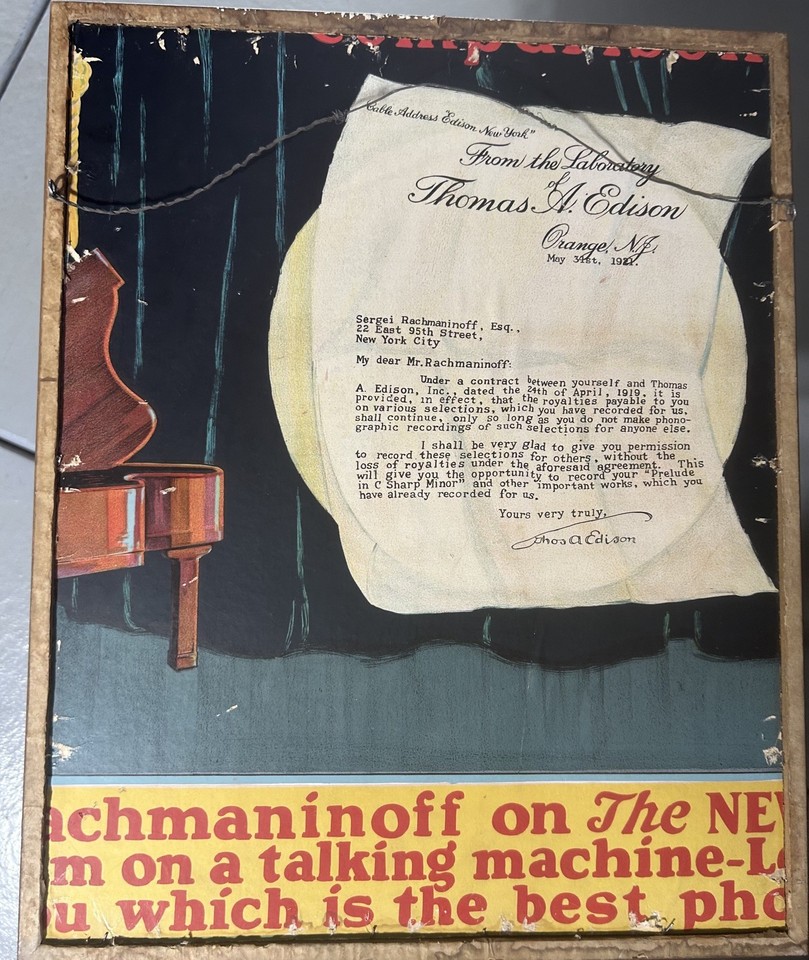 comparison
Cable Address "Edison New York"
From the Laboratory
of
Thomas A. Edison
Orange, N.J.
May 31st, 1921.
Sergei Rachmaninoff, Esq.,
22 East 95th Street,
New York City
My dear Mr.Rachmaninoff:
Under a contract between yourself and Thomas
A. Edison, Inc., dated the 24th of April, 1919, it is
provided, in effect, that the royalties payable to you
on various selections, which you have recorded for us,
shall continue, only so long as you do not make phono-
graphic recordings of such selections for anyone else.
I shall be very glad to give you permission
to record these selections for others, without the
loss of royalties under the aforesaid agreement. This
will give you the opportunity to record your "Prelude
in C Sharp Minor" and other important works, which you
have already recorded for us.
Yours very truly,
Thos A Edison
achmaninoff on The NEW
m on a talking machine-L
u which is the best pho